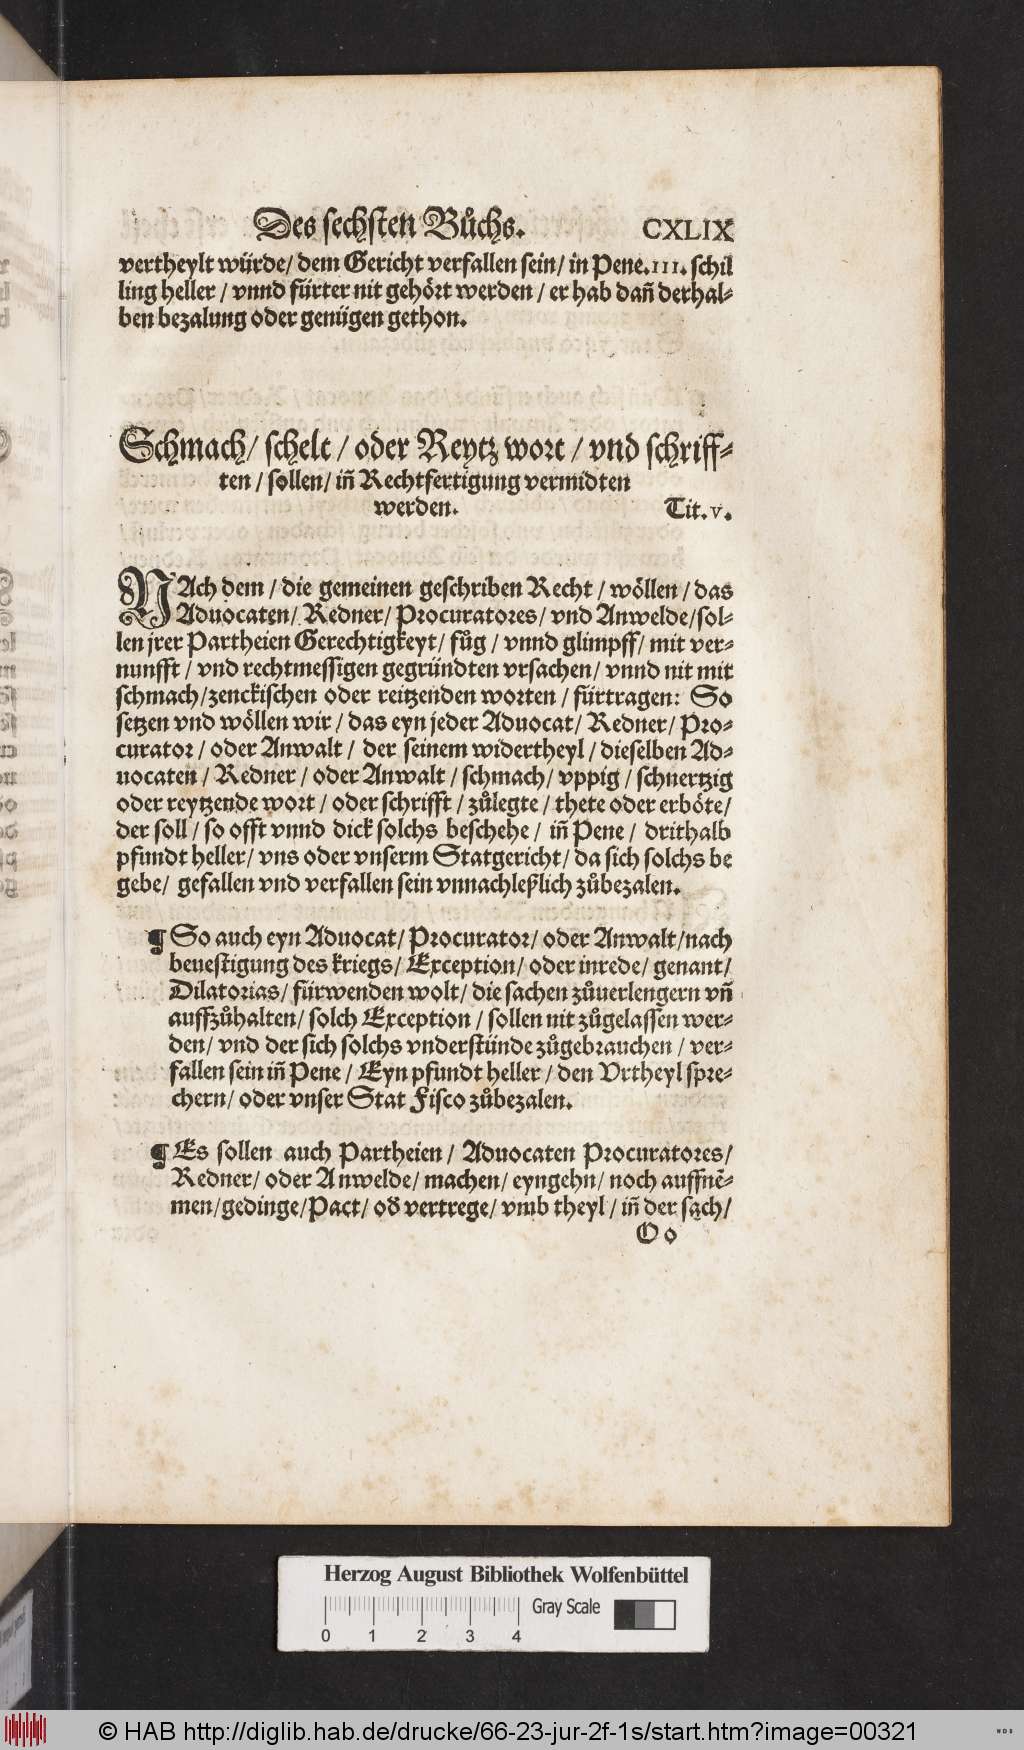 Des sechsten Bůchs. CXLIX
vertheylt würde/ dem Gericht verfallen sein/ in Pene. III. schil
ling heller / vnnd fürter nit gehört werden / er hab dañ derhal-
ben bezalung oder genügen gethon.
Schmach/ schelt / oder Reytz wort / vnd schriff-
ten / sollen/ iñ Rechtfertigung vermidten
werden. Tit. v.
NAch dem / die gemeinen geschriben Recht / wöllen / das
Aduocaten/ Redner/ Procuratores/ vnd Anwelde/ sol-
len jrer Partheien Gerechtigkeyt/ fůg / vnnd glimpff/ mit ver-
nunfft / vnd rechtmessigen gegründten vrsachen/ vnnd nit mit
schmach/ zenckischen oder reitzenden worten / fürtragen: So
setzen vnd wöllen wir / das eyn jeder Aduocat/ Redner/ Pro-
curator / oder Anwalt / der seinem widertheyl / dieselben Ad-
uocaten / Redner / oder Anwalt / schmach/ vppig / schnertzig
oder reytzende wort / oder schrifft / zůlegte / thete oder erböte/
der soll / so offt vnnd dick solchs beschehe / iñ Pene / drithalb
pfundt heller/ vns oder vnserm Statgericht/ da sich solchs be
gebe/ gefallen vnd verfallen sein vnnachleßlich zůbezalen.
¶ So auch eyn Aduocat/ Procurator/ oder Anwalt/ nach
beuestigung des kriegs/ Exception/ oder inrede/ genant/
Dilatorias/ fürwenden wolt/ die sachen zůuerlengern vñ
auffzůhalten/ solch Exception / sollen nit zůgelassen wer-
den/ vnd der sich solchs vnderstünde zůgebrauchen / ver-
fallen sein iñ Pene / Eyn pfundt heller / den Vrtheyl spre-
chern/ oder vnser Stat Fisco zůbezalen.
¶ Es sollen auch Partheien/ Aduocaten Procuratores/
Redner/ oder Anwelde/ machen/ eyngehn/ noch auffnē-
men/ gedinge/ Pact/ od̕ vertrege/ vmb theyl / iñ der sach/
O o
Herzog August Bibliothek Wolfenbüttel
Gray Scale
0 1 2 3 4
© HAB http://diglib.hab.de/drucke/66-23-jur-2f-1s/start.htm?image=00321
WDB